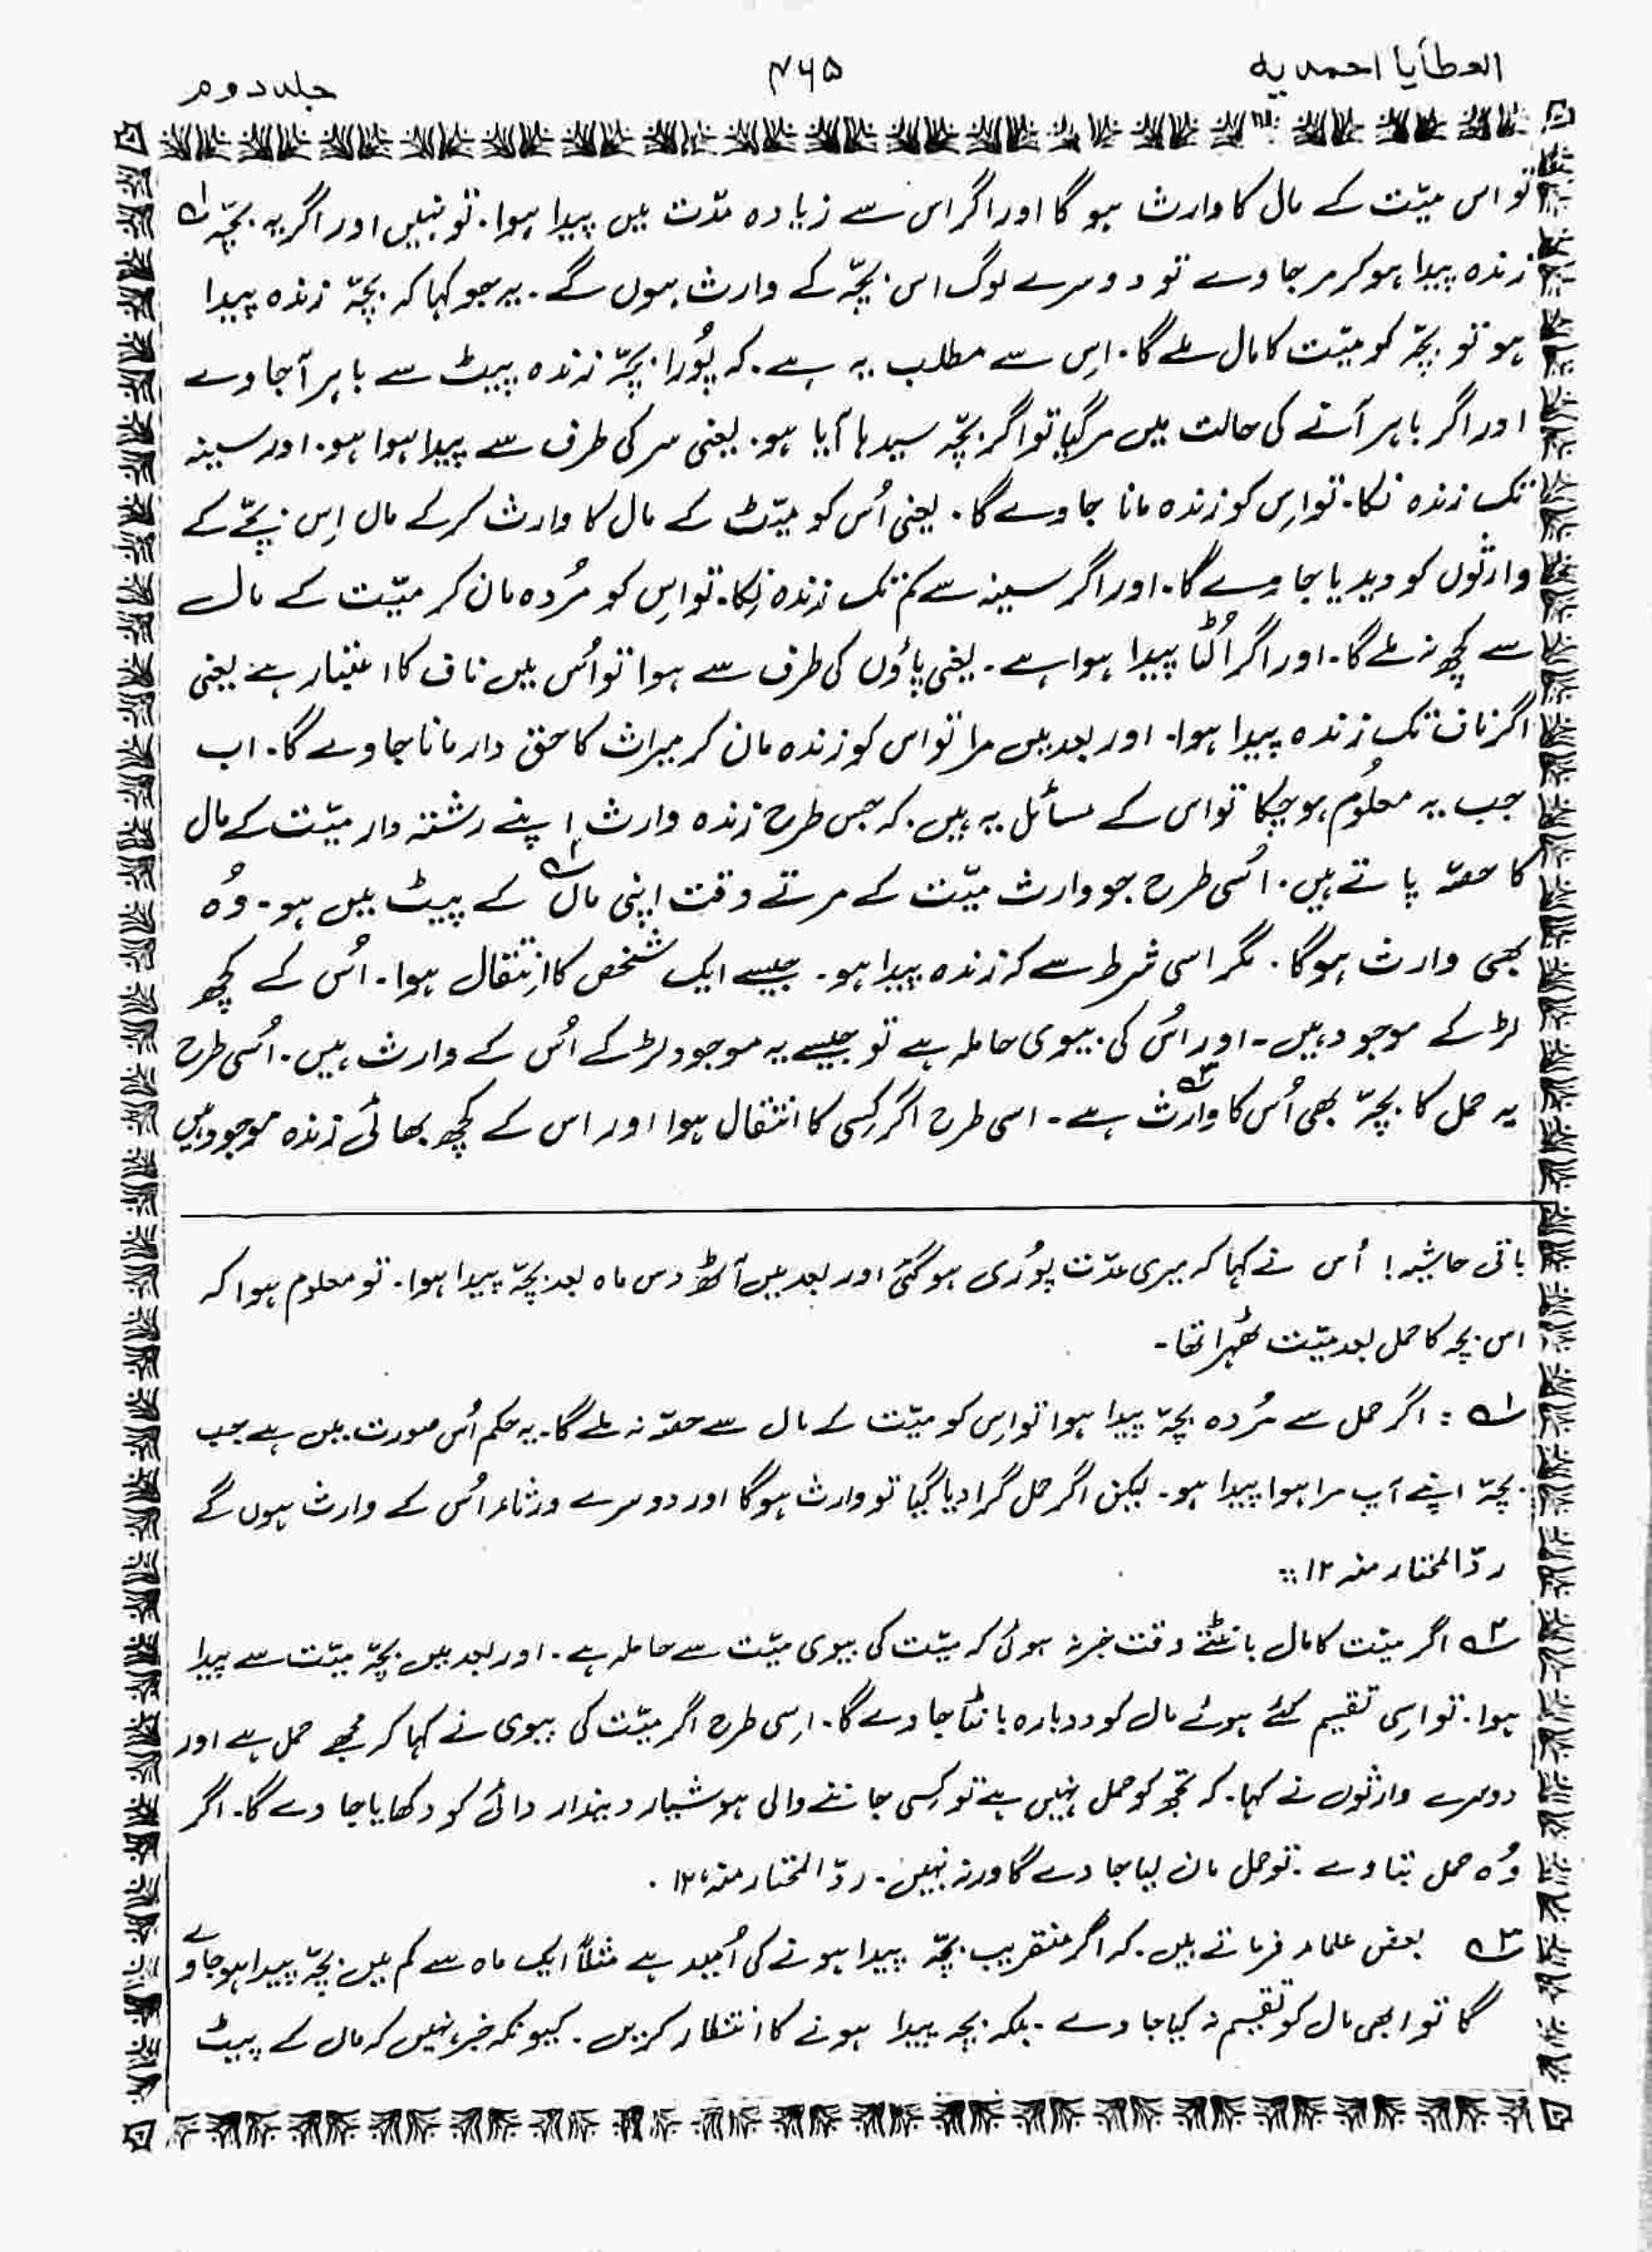 العطایا احمدیہ ۴۶۵ جلد دوم
تو اس میّت کے مال کا وارث ہو گا اور اگر اس سے زیادہ مدّت میں پیدا ہوا۔ تو نہیں اور اگر یہ بچّہ ۱؎
زندہ پیدا ہو کر مر جاوے تو دوسرے لوگ اس بچّہ کے وارث ہوں گے۔ یہ جو کہا کہ بچّہ زندہ پیدا
ہو تو بچّہ کو میّت کا مال ملے گا۔ اِس سے مطلب یہ ہے۔ کہ پُورا بچّہ زندہ پیٹ سے باہر آ جاوے
اور اگر باہر آنے کی حالت میں مر گیا تو اگر بچّہ سیدہا آیا ہو۔ یعنی سر کی طرف سے پیدا ہوا ہو۔ اور سینہ
تک زندہ نکا۔ تو اِس کو زندہ مانا جاوے گا۔ یعنی اُس کو میّت کے مال کا وارث کر کے مال اِس بچّے کے
وارثوں کو دیدیا جاوے گا۔ اور اگر سینہ سے کم تک زندہ نِکا۔ تو اِس کو مُردہ مان کر میّت کے مال
سے کچھ نہ ملے گا۔ اور اگر اُلٹا پیدا ہوا ہے۔ یعنی پاؤں کی طرف سے ہوا تو اُس میں ناف کا اعتبار ہے یعنی
اگر ناف تک زندہ پیدا ہوا۔ اور بعد میں مرا تو اس کو زندہ مان کر میراث کا حق دار مانا جاوے گا۔ اب
جب یہ معلُوم ہو چکا تو اس کے مسائل یہ ہیں۔ کہ جس طرح زندہ وارث اپنے رشتہ دار میّت کے مال
کا حصّہ پاتے ہیں۔ اُسی طرح جو وارث میّت کے مرتے وقت اپنی ماں ۲؎ کے پیٹ میں ہو۔ وُہ
بھی وارث ہو گا۔ مگر اسی شرط سے کہ زندہ پیدا ہو۔ جیسے ایک شخص کا اِنتقال ہوا۔ اُس کے کچھ
لڑکے موجود ہیں۔ اور اُس کی بیوی حاملہ ہے تو جیسے یہ موجود لڑکے اُس کے وارث ہیں۔ اُسی طرح
یہ حمل کا بچّہ بھی اُس کا وارث ۳؎ ہے۔ اسی طرح اگر کِسی کا انتقال ہوا اور اس کے کچھ بھائی زندہ موجود ہیں
باقی حاشیہ! اُس نے کہا کہ میری عدّت پُوری ہو گئی اور بعد میں آٹھ دس ماہ بعد بچّہ پیدا ہوا۔ تو معلوم ہوا کہ
اس بچہ کا حمل بعد میّت ٹھہرا تھا۔
۱؎ : اگر حمل سے مُردہ بچّہ پیدا ہوا تو اِس کو میّت کے مال سے حصّہ نہ ملے گا۔ یہ حکم اُس صورت میں ہے جب
بچّہ اپنے آپ مرا ہوا پیدا ہو۔ لیکن اگر حمل گرا دیا گیا تو وارث ہو گا اور دوسرے ورثاء اُس کے وارث ہوں گے
ردّ المختار منہ ۱۲
۲؎ اگر میّت کا مال بانٹتے وقت خبر نہ ہوئی کہ میّت کی بیوی میّت سے حاملہ ہے۔ اور بعد میں بچّہ میّت سے پیدا
ہوا۔ تو اِسی تقسیم کئے ہوئے مال کو دوبارہ بانٹا جاوے گا۔ اِسی طرح اگر میّت کی بیوی نے کہا کہ مجھے حمل ہے اور
دوسرے وارثوں نے کہا۔ کہ تجھ کو حمل نہیں ہے تو کِسی جاننے والی ہوشیار دیندار دائی کو دکھایا جاوے گا۔ اگر
وُہ حمل بتاوے۔ تو حمل مان لیا جاوے گا ورنہ نہیں۔ ردّ المختار منہ ۱۲۔
۳؎ بعض علماء فرماتے ہیں۔ کہ اگر عنقریب بچّہ پیدا ہونے کی اُمید ہے مثلاً ایک ماہ سے کم میں بچّہ پیدا ہو جاوے
گا تو ابھی مال کو تقسیم نہ کیا جاوے۔ بلکہ بچہ پیدا ہونے کا انتظار کریں۔ کیونکہ خبر نہیں کہ ماں کے پیٹ